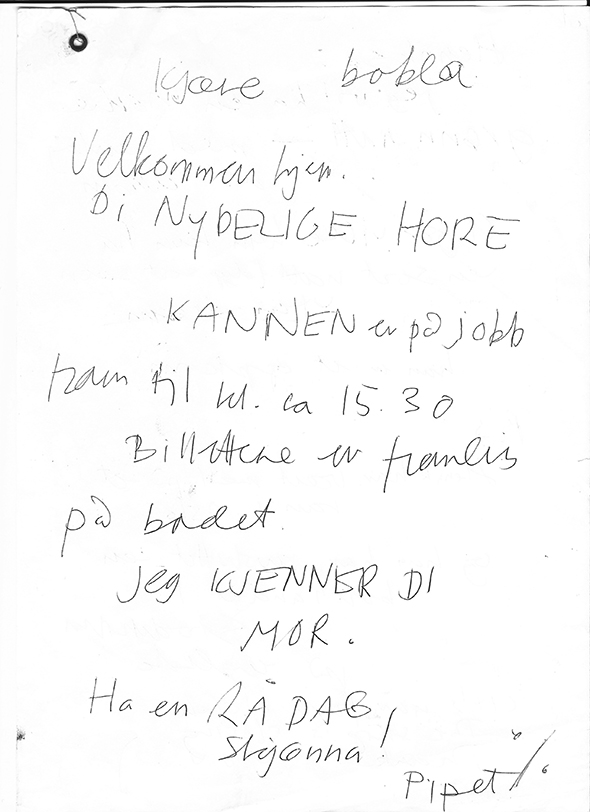 Kjære bobla
Velkommen hjem.
Di NYDELIGE HORE
KANNEN er på jobb
fram til kl. ca 15.30
Billettene er fremleis
på badet.
Jeg KJENNER DI
MOR.
Ha en RÅ DAG,
Stjønna!
Pipet